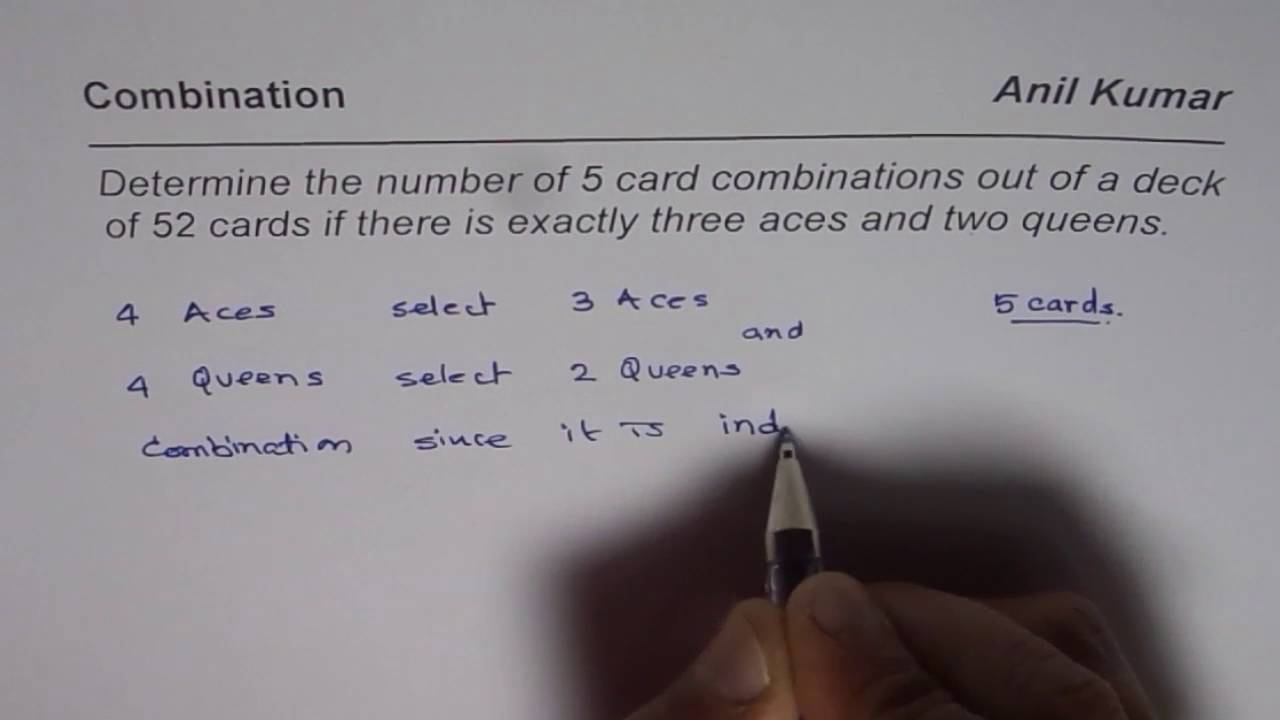 Combination Anil Kumar
Determine the number of 5 card combinations out of a deck
of 52 cards if there is exactly three aces and two queens.
4 Aces select 3 Aces 5 cards.
and
4 Queens select 2 Queens
Combination since it is ind